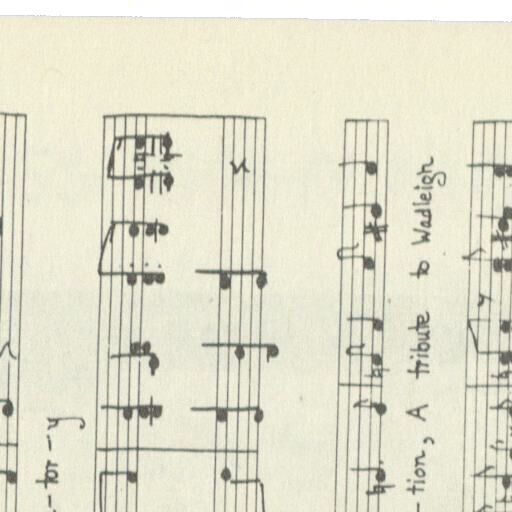 -tor--y
-tion, A tribute to Wadleigh